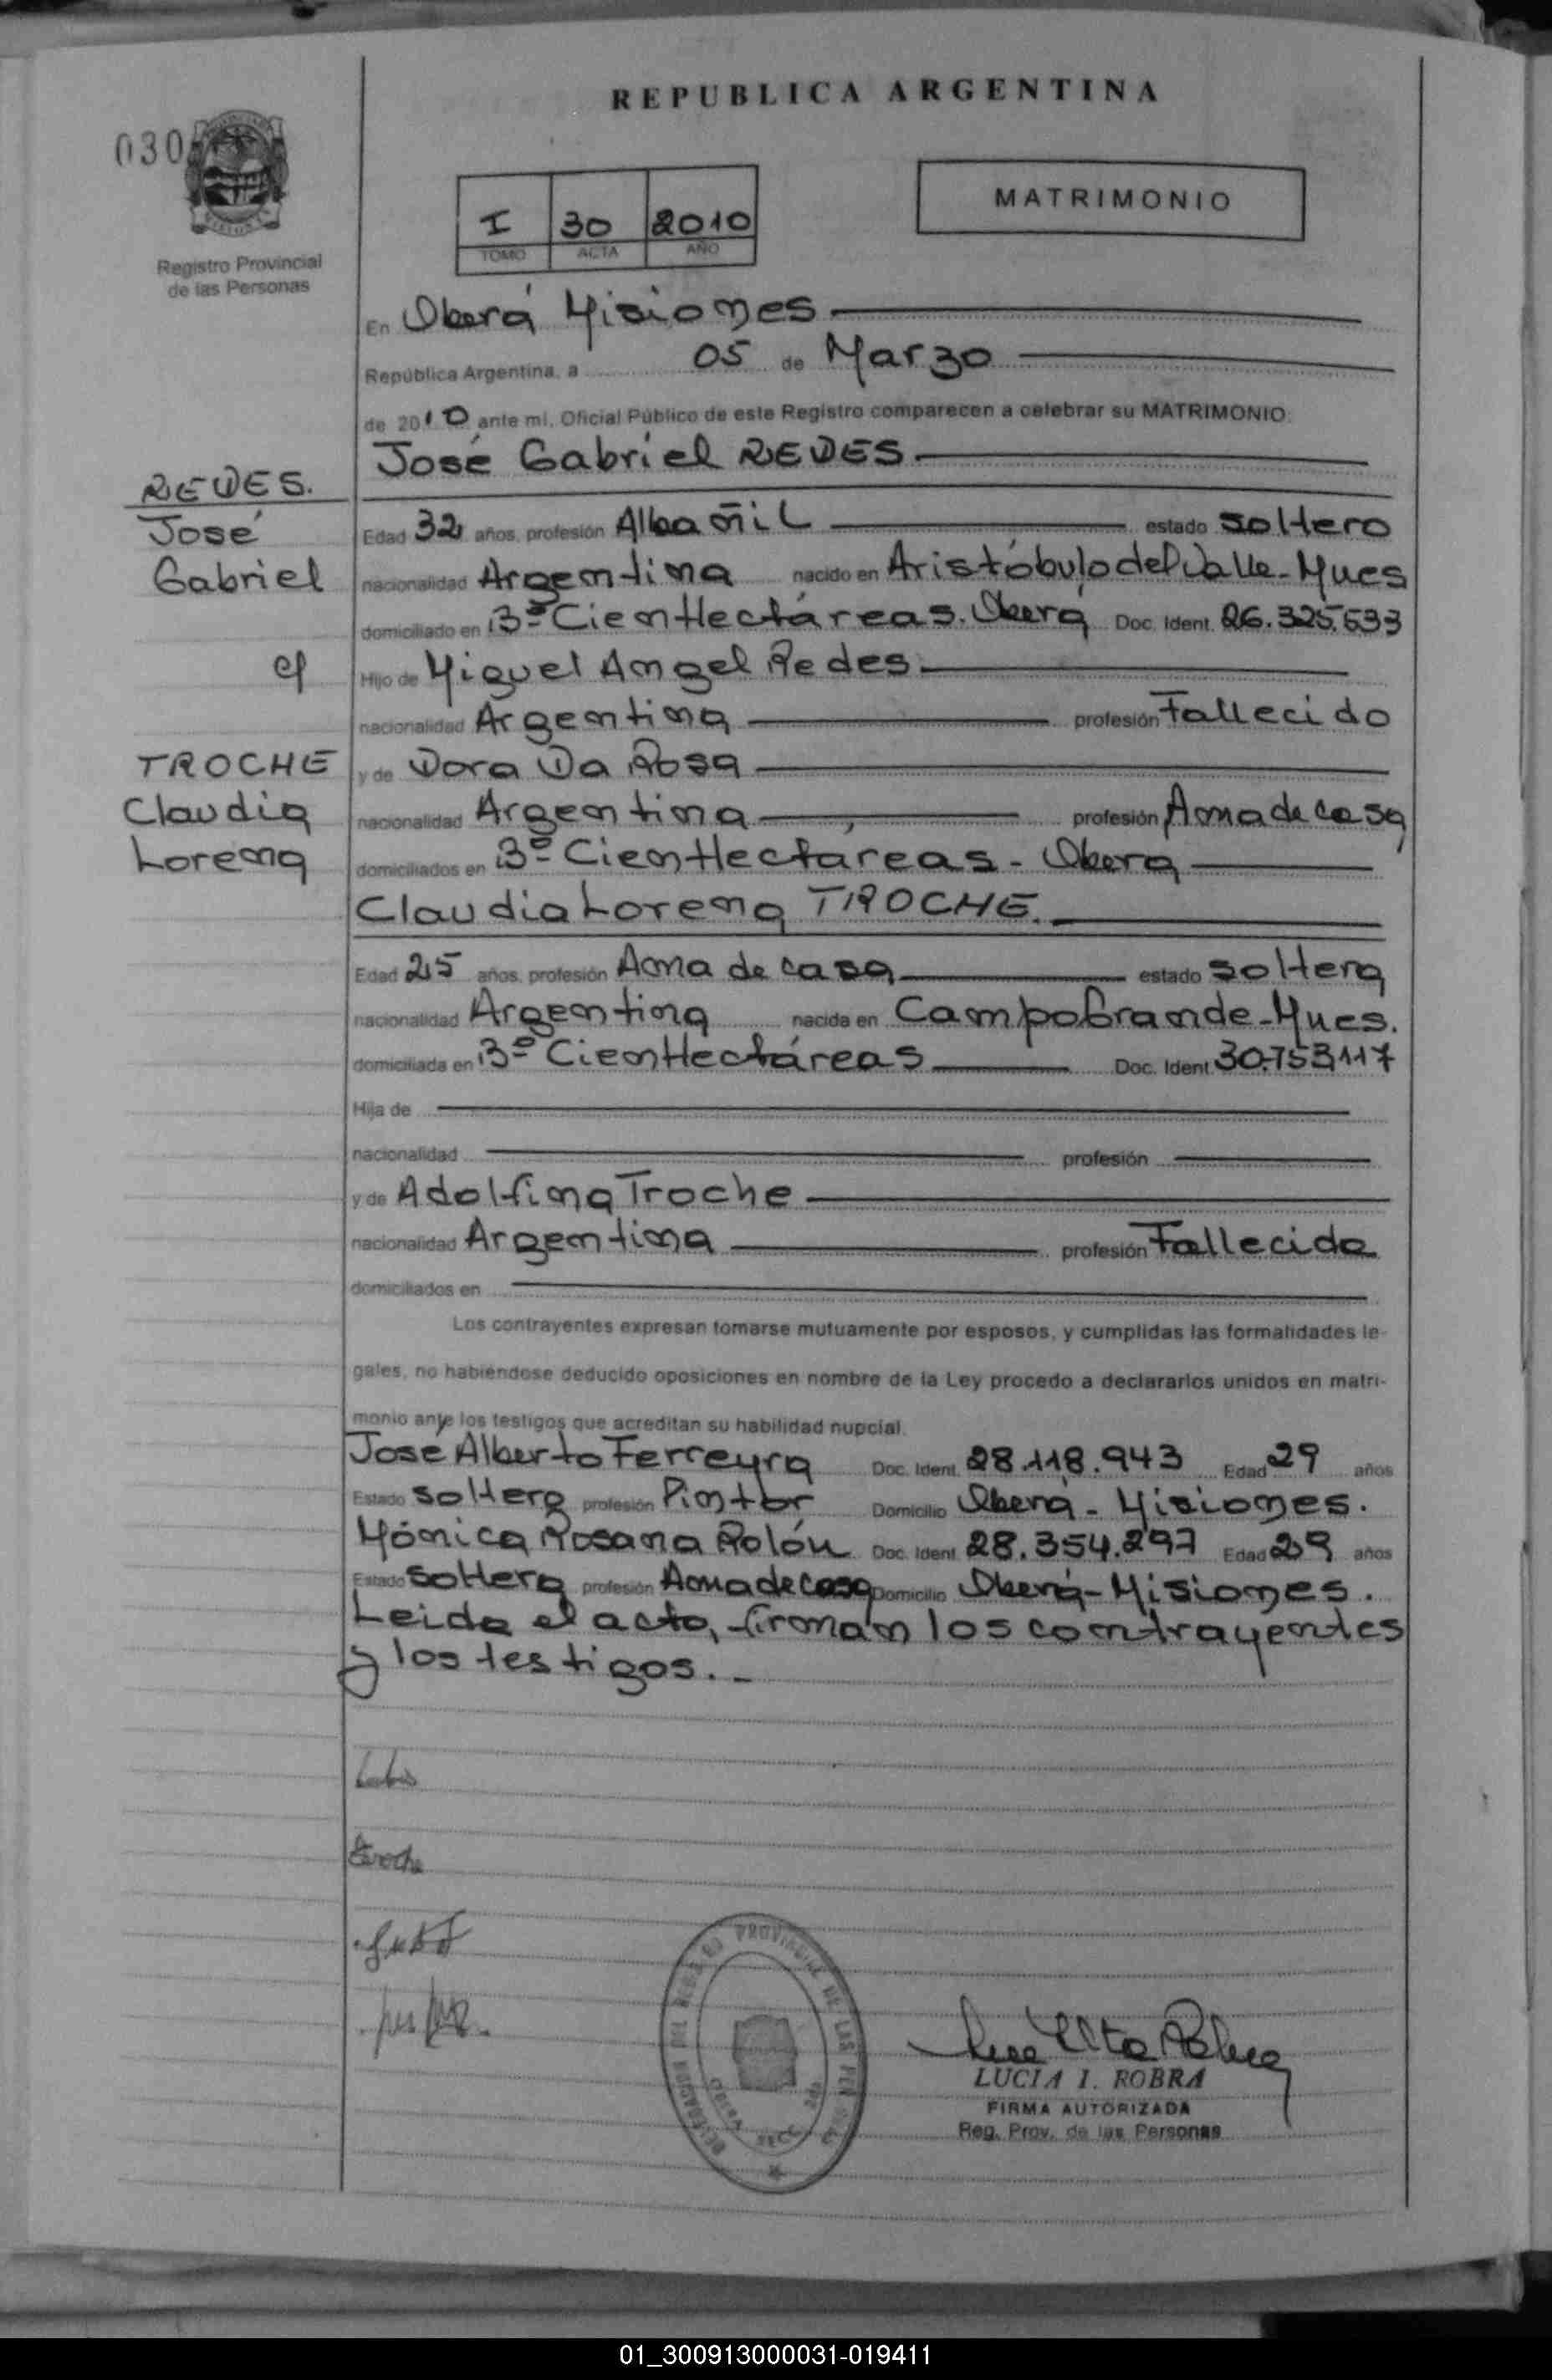 REPUBLICA ARGENTINA
030
MATRIMONIO
I 30 2010
TOMO ACTA AÑO
Registro Provincial
de las Personas
En Oberá Misiones
República Argentina, a 05 de Marzo
de 2010 ante mi, Oficial Público de este Registro comparecen a celebrar su MATRIMONIO:
José Gabriel REDES
REDES.
José
Gabriel
c/
TROCHE
Claudia
Lorena
Edad 32 años, profesión Albañil estado soltero
nacionalidad Argentina nacido en Aristóbulo del Valle-Mnes
domiciliado en 3º Cien Hectáreas. Oberá Doc. Ident. 26.325.533
Hijo de Miguel Angel Redes
nacionalidad Argentina profesión Fallecido
y de Dora Da Rosa
nacionalidad Argentina profesión Ama de casa
domiciliados en 3º Cien Hectáreas - Obera
Claudia Lorena TROCHE.
Edad 25 años, profesión Ama de casa estado soltera
nacionalidad Argentina nacida en Campo Grande-Mnes.
domiciliada en 3º Cien Hectáreas Doc. Ident. 30.753.117
Hija de
nacionalidad profesión
y de Adolfina Troche
nacionalidad Argentina profesión Fallecida
domiciliados en
Los contrayentes expresan tomarse mutuamente por esposos, y cumplidas las formalidades le-
gales, no habiéndose deducido oposiciones en nombre de la Ley procedo a declararlos unidos en matri-
monio ante los testigos que acreditan su habilidad nupcial.
Jose Alberto Ferreyra Doc. Ident. 28.118.943 Edad 29 años
Estado soltero profesión Pintor Domicilio Oberá - Misiones.
Mónica Rosana Rolón Doc. Ident. 28.354.297 Edad 29 años
Estado soltera profesión Ama de casa Domicilio Oberá-Misiones.
Leida el acta, firman los contrayentes
y los testigos.-
Troche
LUCIA I. ROBRA
FIRMA AUTORIZADA
Reg. Prov. de las Personas
01_300913000031-019411